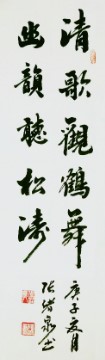 清歌觀鶴舞
幽韻聽松濤
庚子夏月
張紹泉書